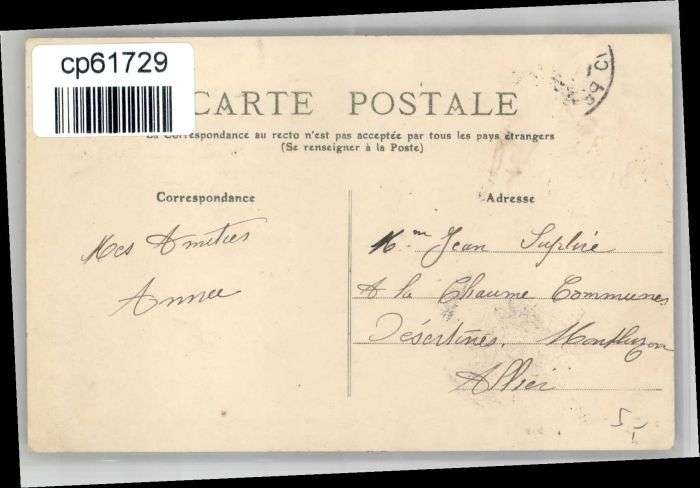 cp61729
CARTE POSTALE
La Correspondance au recto n'est pas acceptée par tous les pays étrangers
(Se renseigner à la Poste)
Correspondance
Adresse
Mes Amitiés
Annee
Mm Jean
A la Chaume Communes
Désertines. Montluçon
Allier